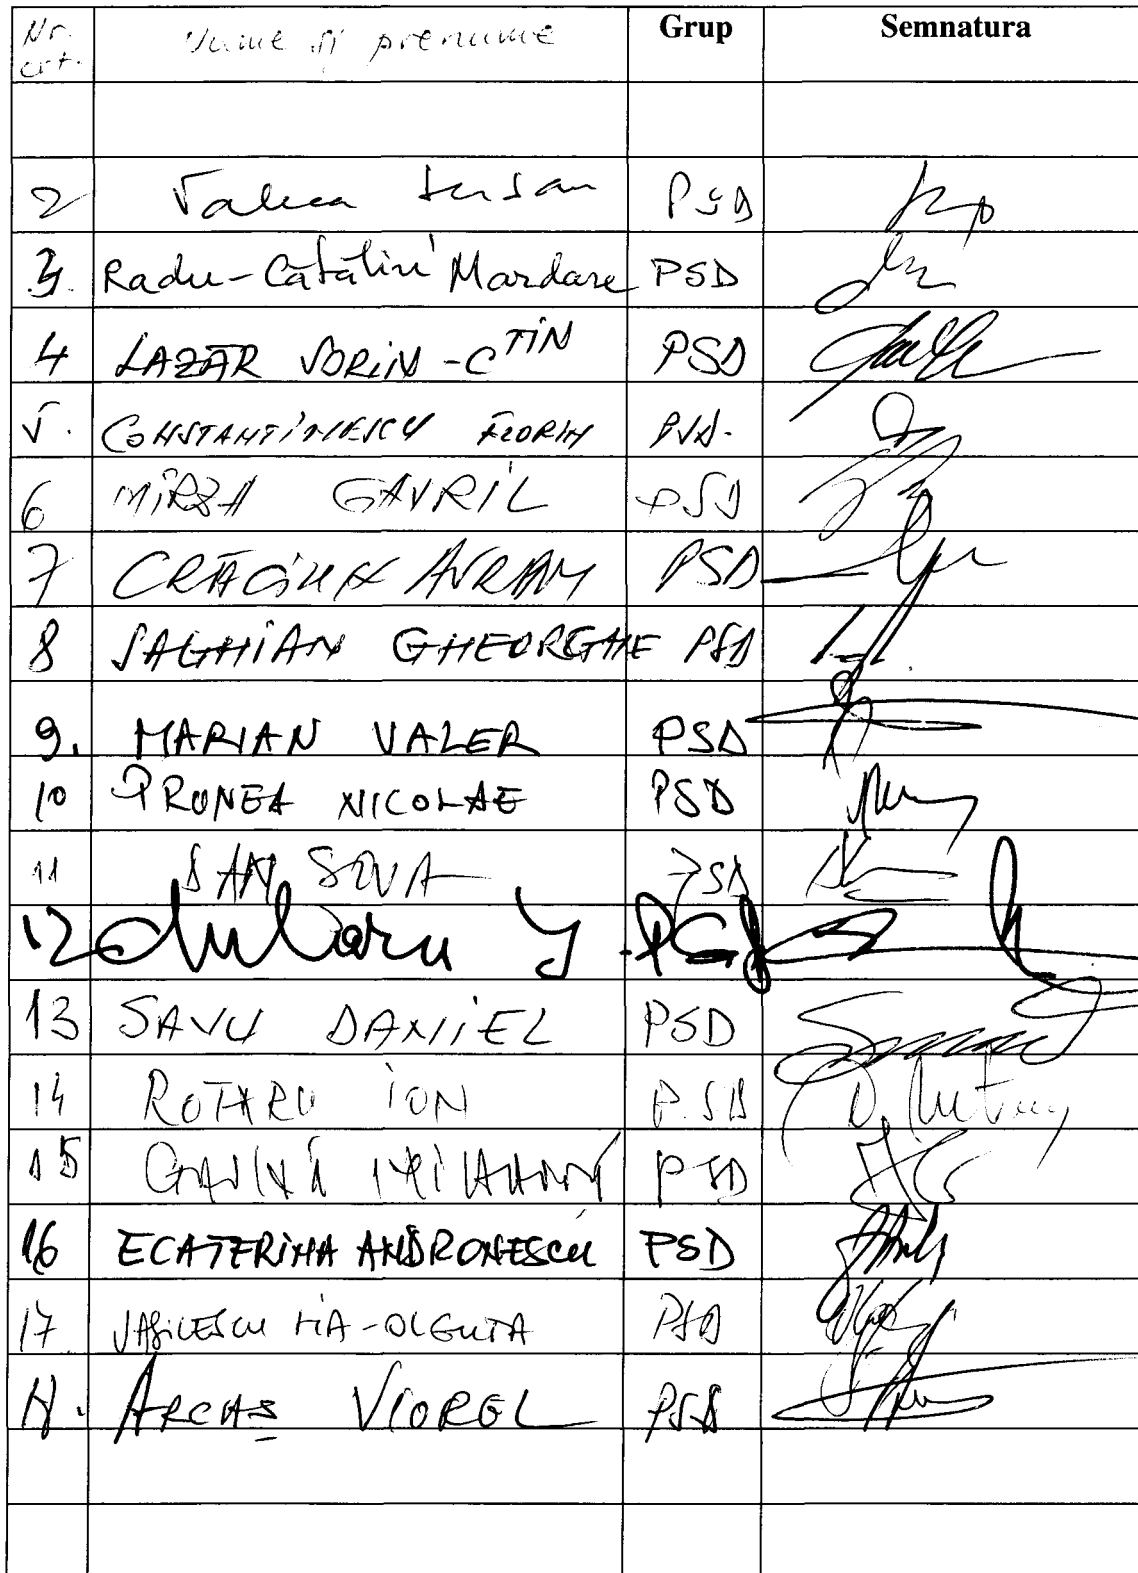 Nr. crt. Nume și prenume Grup Semnatura
2 Valca PSD
3. Radu-Cătălin Mardare PSD
4 LAZĂR SORIN-CTIN PSD
5. CONSTANTINESCU FLORIN PSD.
6 MÎRZA GAVRIL PSD
7 CRĂCIUN AVRAM PSD
8 SAGHIAN GHEORGHE PSD
9. MARIAN VALER PSD
10 PRUNEA NICOLAE PSD
11 DAN SOVA PSD
12
13 SAVU DANIEL PSD
14 ROTARU ION PSD
15 PSD
16 ECATERINA ANDRONESCU PSD
17 VASILESCU LIA-OLGUTA PSD
ARCAȘ VIOREL PSD